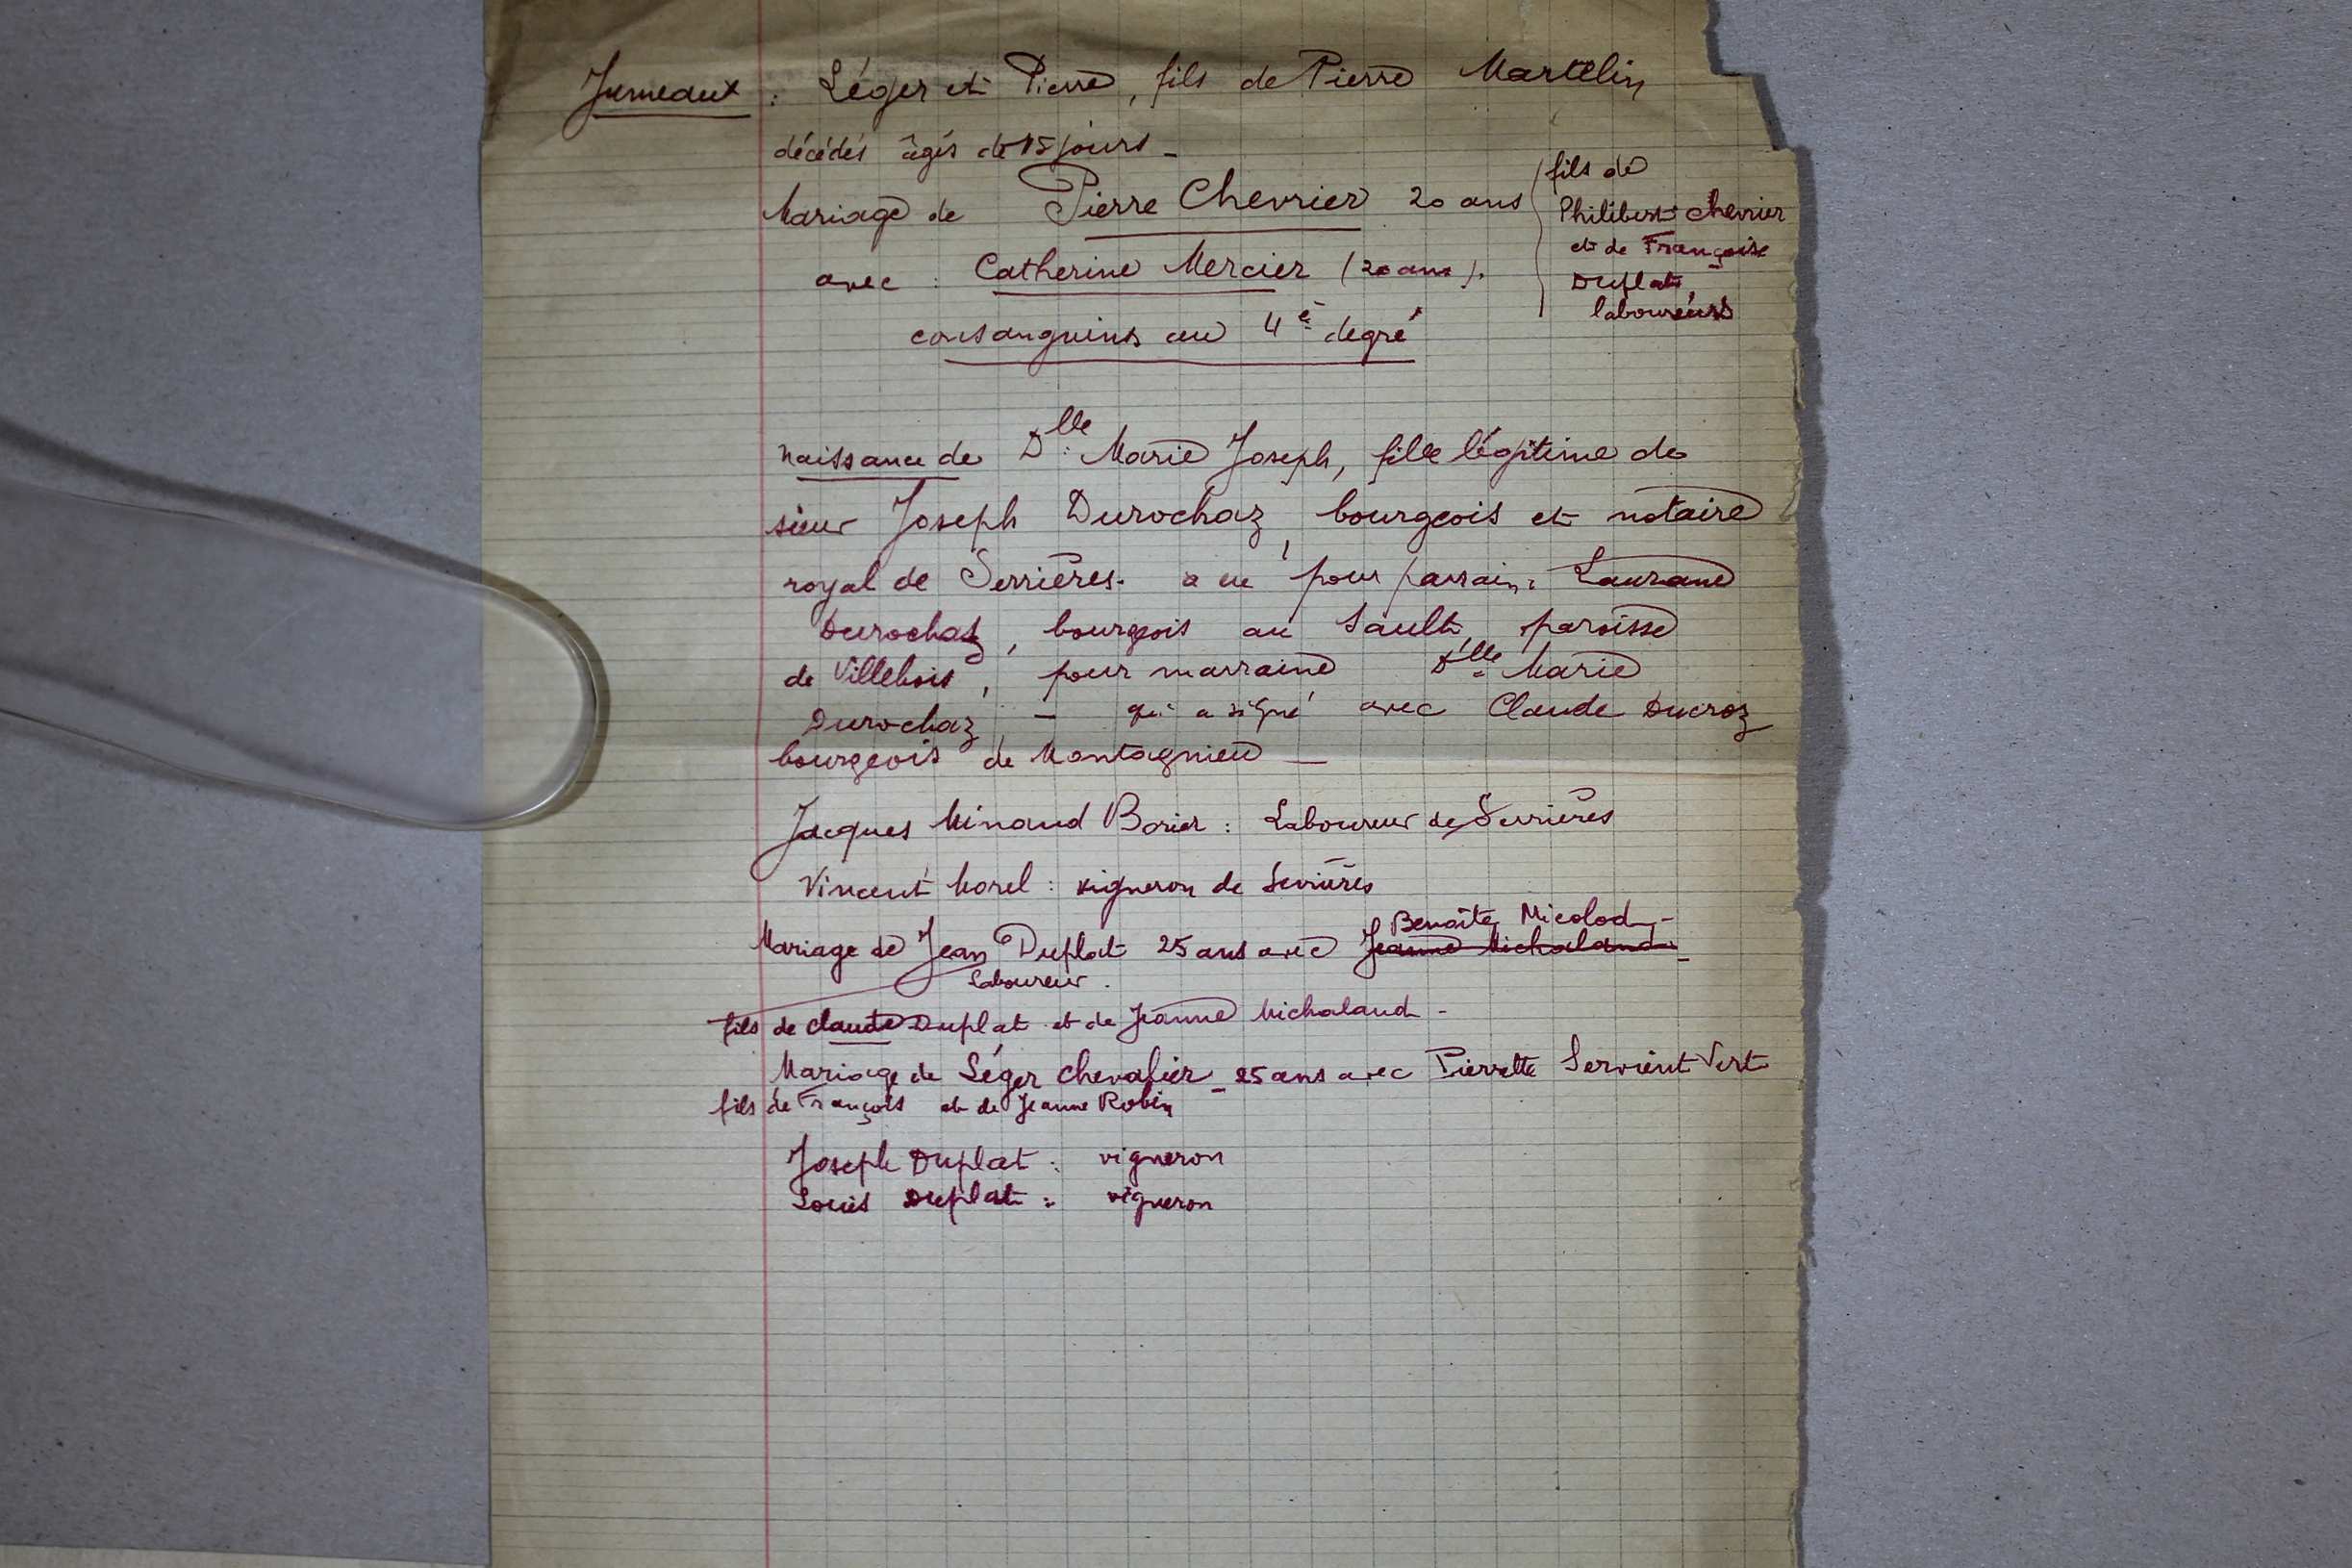 Jumeaux : Léger et Pierre, fils de Pierre Martelin
décédés âgés de 15 jours -
Mariage de Pierre Chevrier 20 ans
fils de
Philibert Chevrier
et de Françoise
Duplat,
laboureurs
avec : Catherine Mercier (20 ans).
consanguins au 4è degré
Naissance de Dlle Marie Joseph, fille légitime de
sieur Joseph Durochaz, bourgeois et notaire
royal de Serrières. a eu pour parrain : Laurand
Durochaz, bourgeois au Sault, paroisse
de Villebois, pour marraine Dlle Marie
Durochaz - qui a signé avec Claude Ducroz
bourgeois de Montagnieu -
Jacques Minaud Borier : Laboureur de Serrières
Vincent Morel : vigneron de Serrières
Benoîte Micolod -
Mariage de Jean Duplat 25 ans avec Jeanne Michaland -
Laboureur.
fils de Claude Duplat et de Jeanne Michaland -
Mariage de Léger Chevalier - 25 ans avec Pierrette Servient Vert
fils de François et de Jeanne Robin
Joseph Duplat : vigneron
Louis Duplat : vigneron